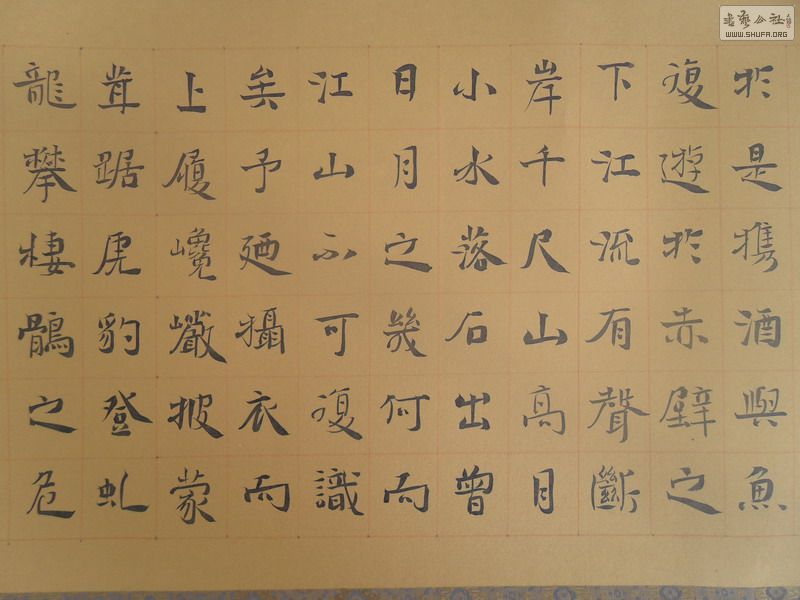 於是携酒與魚
復遊於赤壁之
下江流有聲斷
岸千尺山高月
小水落石出曾
日月之幾何而
江山不可復識
矣予廼攝衣而
上履巉巖披蒙
茸踞虎豹登虬
龍攀棲鶻之危
書藝公社
WWW.SHUFA.ORG